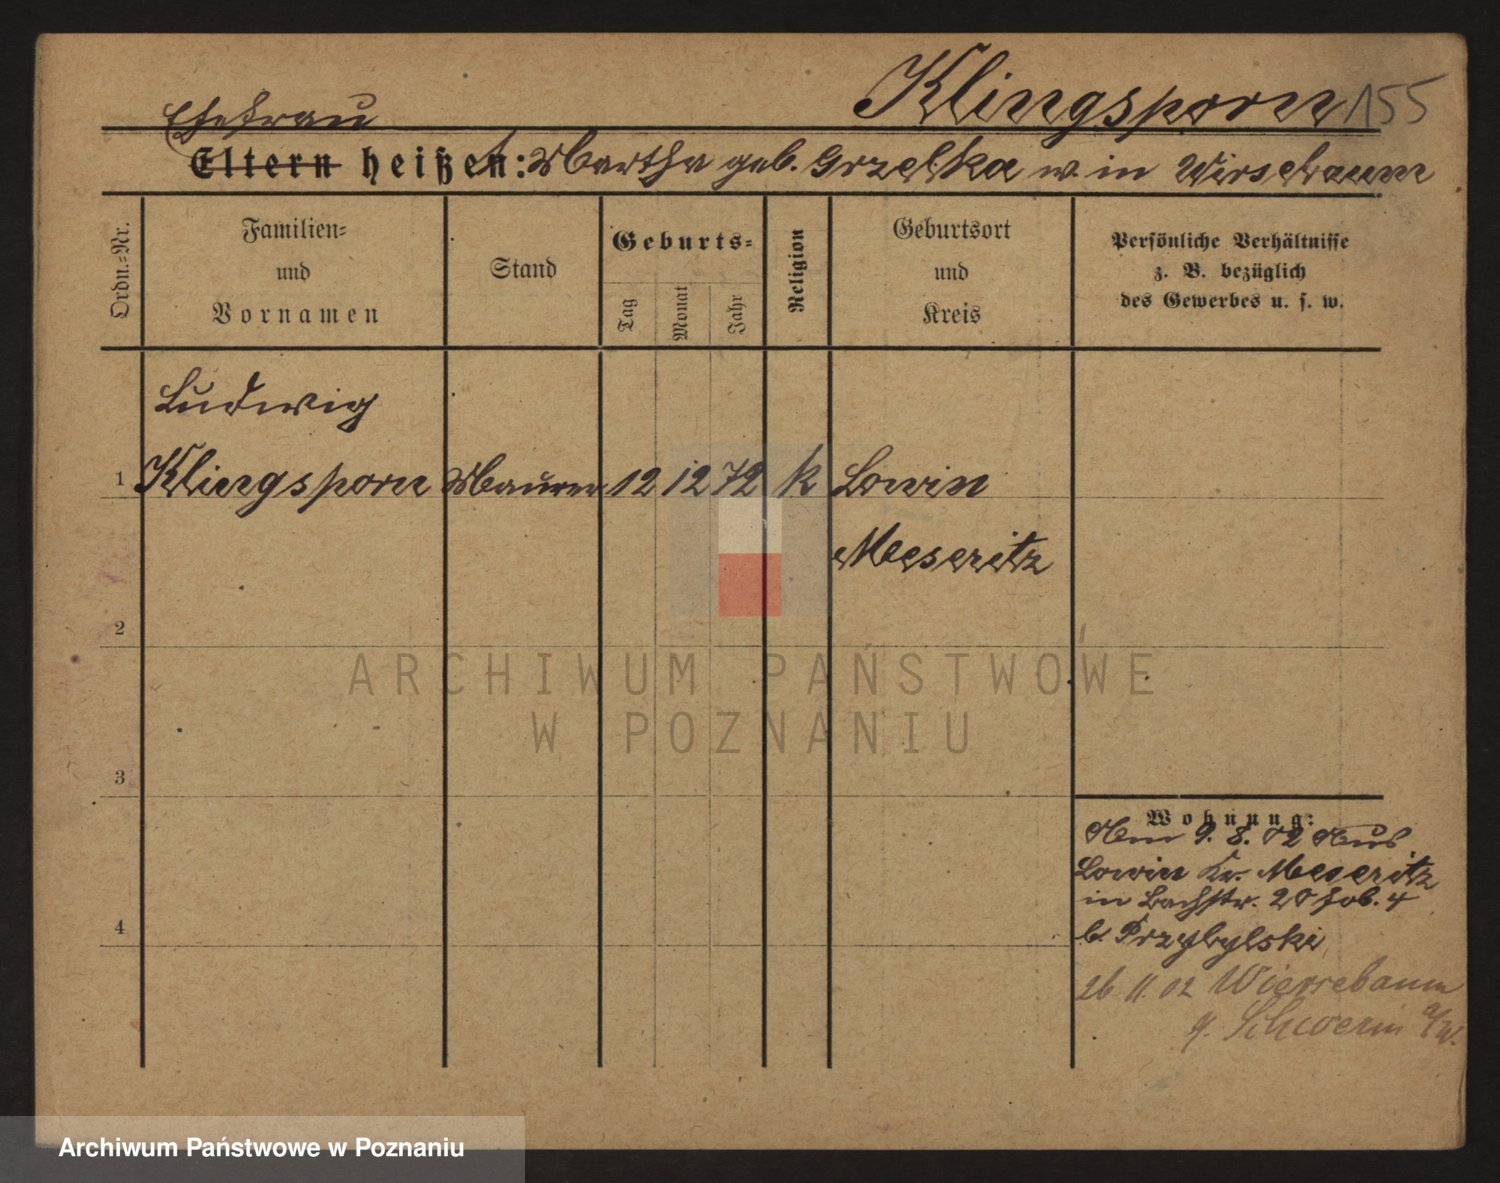 Klingsporn 155
Ehefrau
Eltern heißen: Martha geb. Grzelka w. in Wirsebaum
Ordn.-Nr.
Familien-
und
Vornamen
Stand
Geburts-
Tag
Monat
Jahr
Religion
Geburtsort
und
Kreis
Persönliche Verhältnisse
z. B. bezüglich
des Gewerbes u. s. w.
Ludwig
1 Klingsporn Maurer 12 12 72 k Lowin
Meseritz
2
3
4
Wohnung:
Am 9. 8. 02 Aus
Lowin Kr. Meseritz
in Bachstr. 20 4
b. Przybylski
26 11. 02 Wierrebaum
Schwerin a/W.
ARCHIWUM PAŃSTWOWE
W POZNANIU
Archiwum Państwowe w Poznaniu